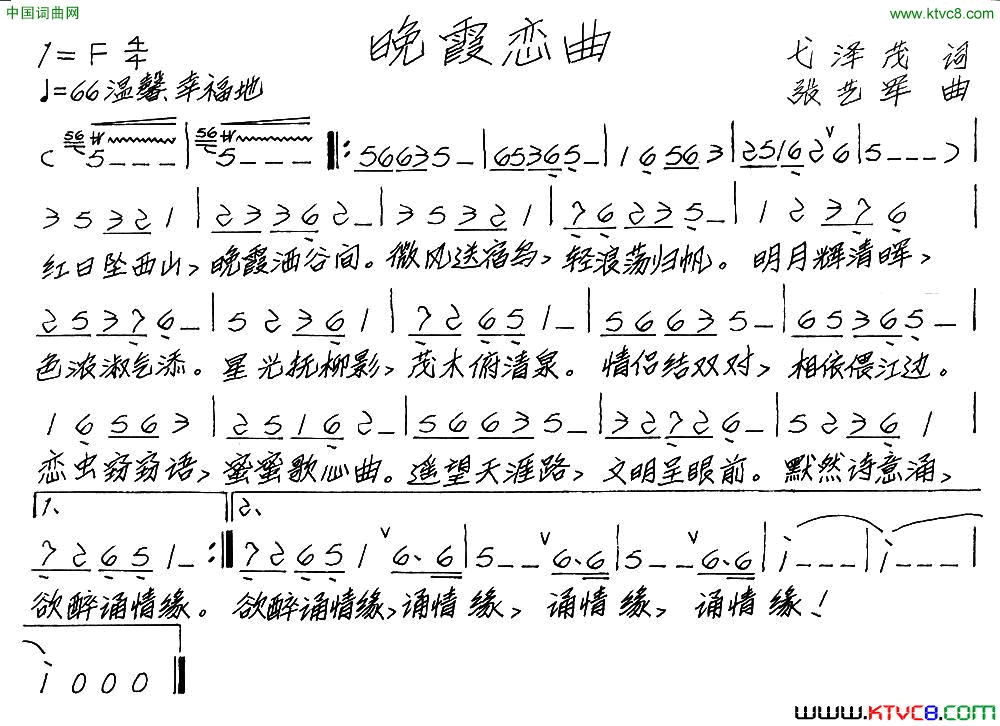 中国词曲网
www.ktvc8.com
晚霞恋曲
1=F 4/4
弋泽茂 词
♩=66 温馨、幸福地
张艺军 曲
(56 5--- | 56 5--- ‖: 56635- | 65365- | 16563 | 251626 | 5---)
35321 | 23362- | 35321 | 76235- | 12376 |
红日坠西山、晚霞洒谷间。微风送宿鸟、轻浪荡归帆。明月辉清晖、
25376- | 52361 | 72651- | 56635- | 65365- |
色浓淑气添。星光抚柳影、茂木俯清泉。情侣结双对、相依偎江边。
16563 | 25162- | 56635- | 32726- | 52361 |
恋虫窃窃语、蜜蜜歌心曲。遥望天涯路、文明呈眼前。默然诗意涌、
1、 2、
72651- :‖ 72651 6·6 | 5-- 6·6 | 5-- 6·6 | i--- | i--- |
欲醉诵情缘。欲醉诵情缘、诵情缘、诵情缘、诵情缘！
i000 ‖
www.KTVC8.com